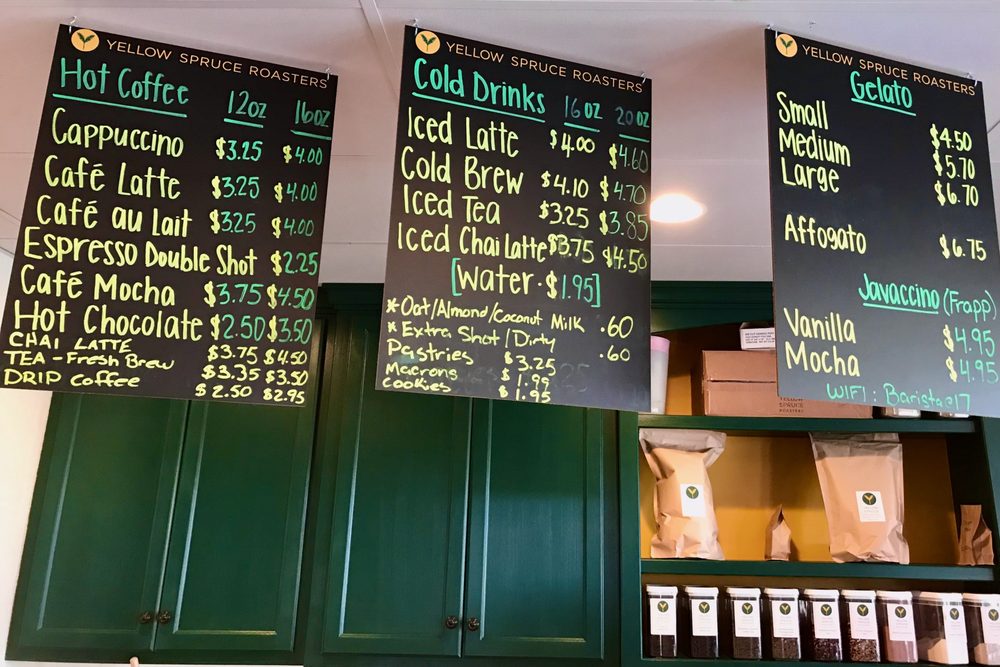 YELLOW SPRUCE ROASTERS
Hot Coffee 12oz 16oz
Cappuccino $3.25 $4.00
Café Latte $3.25 $4.00
Café au Lait $3.25 $4.00
Espresso Double Shot $2.25
Café Mocha $3.75 $4.50
Hot Chocolate $2.50 $3.50
CHAI LATTE $3.75 $4.50
TEA - Fresh Brew $3.35 $3.50
DRIP Coffee $2.50 $2.95
YELLOW SPRUCE ROASTERS
Cold Drinks 16 oz 20 oz
Iced Latte $4.00 $4.60
Cold Brew $4.10 $4.70
Iced Tea $3.25 $3.85
Iced Chai Latte $3.75 $4.50
[Water · $1.95]
*Oat/Almond/Coconut Milk .60
*Extra Shot/Dirty .60
Pastries $3.25
Macrons $1.99
Cookies $1.95
YELLOW SPRUCE ROASTERS
Gelato
Small $4.50
Medium $5.70
Large $6.70
Affogato $6.75
Javaccino (Frapp)
Vanilla $4.95
Mocha $4.95
WIFI: 
YELLOW
SPRUCE
ROASTERS